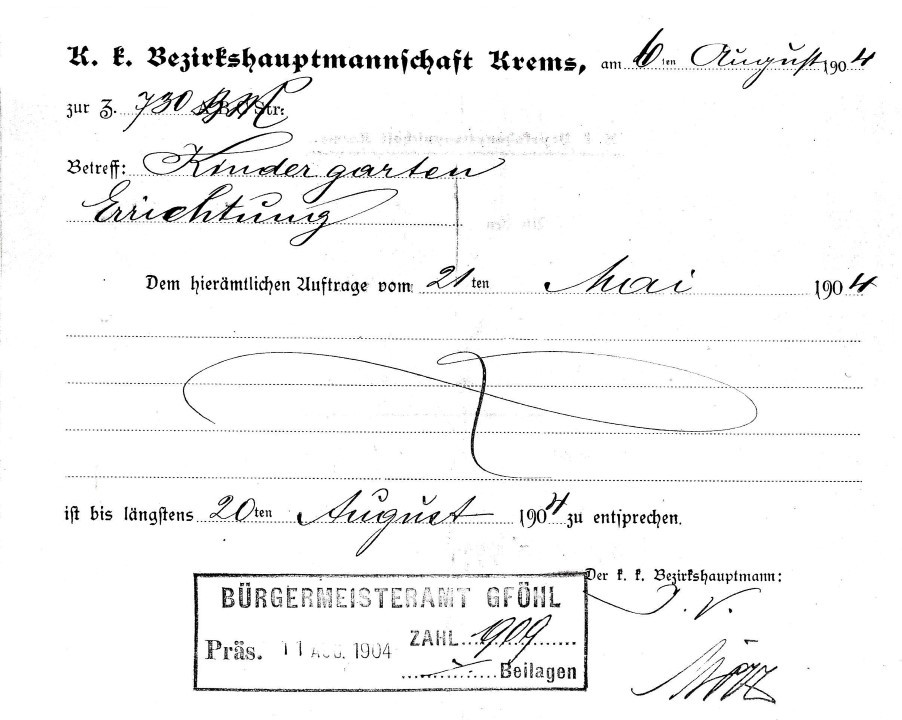 K. k. Bezirkshauptmannschaft Krems, am 6ten August 1904
zur Z. 730
Betreff: Kindergarten
Errichtung
Dem hierämtlichen Auftrage vom 21ten Mai 1904
ist bis längstens 20ten August 1904 zu entsprechen.
Der k. k. Bezirkshauptmann:
I. V.
BÜRGERMEISTERAMT GFÖHL
Präs. 11 AUG. 1904 ZAHL 909
Beilagen